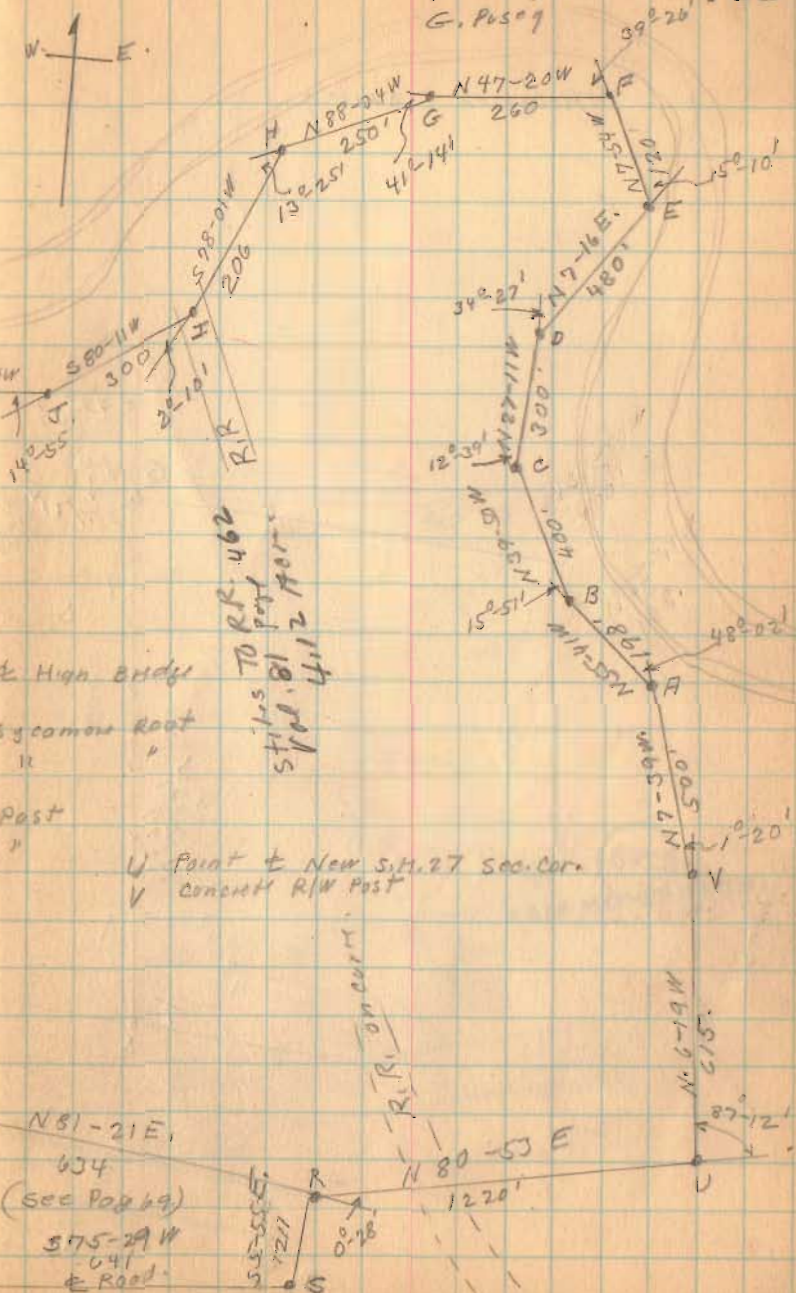 G. Posey
39°-26'
W. E.
N47-20W
260
F
G
N88-04W
250'
H
41°-14'
13°-25'
N7-54W
120'
15°-10'
E
S78-01W
206
N7-16E.
480'
34°-27'
D
H
S80-11W
300
2°-10'
W
14°-55'
R.R
N27-11W
300'
12°-39'
C
N39-50W
400'
B
15°-51'
N55-41W
198'
48°-02'
A
Stiles To R.R. 462
Vol. 81 page
4.12 Acr.
℄ High Bridge
Sycamore Root
" "
Post
"
N7-59W
500'
1°-20'
V
U Point ℄ New S.H.27 Sec.Cor.
V Concrete R/W Post
R.R. on curve.
N.6-19W
615.
87°-12'
U
N81-21E,
634
(See Page 69)
R
N 80-53 E
1220'
0°-28'
S5-55E.
721'
S75-29W
641
℄ Road.
S